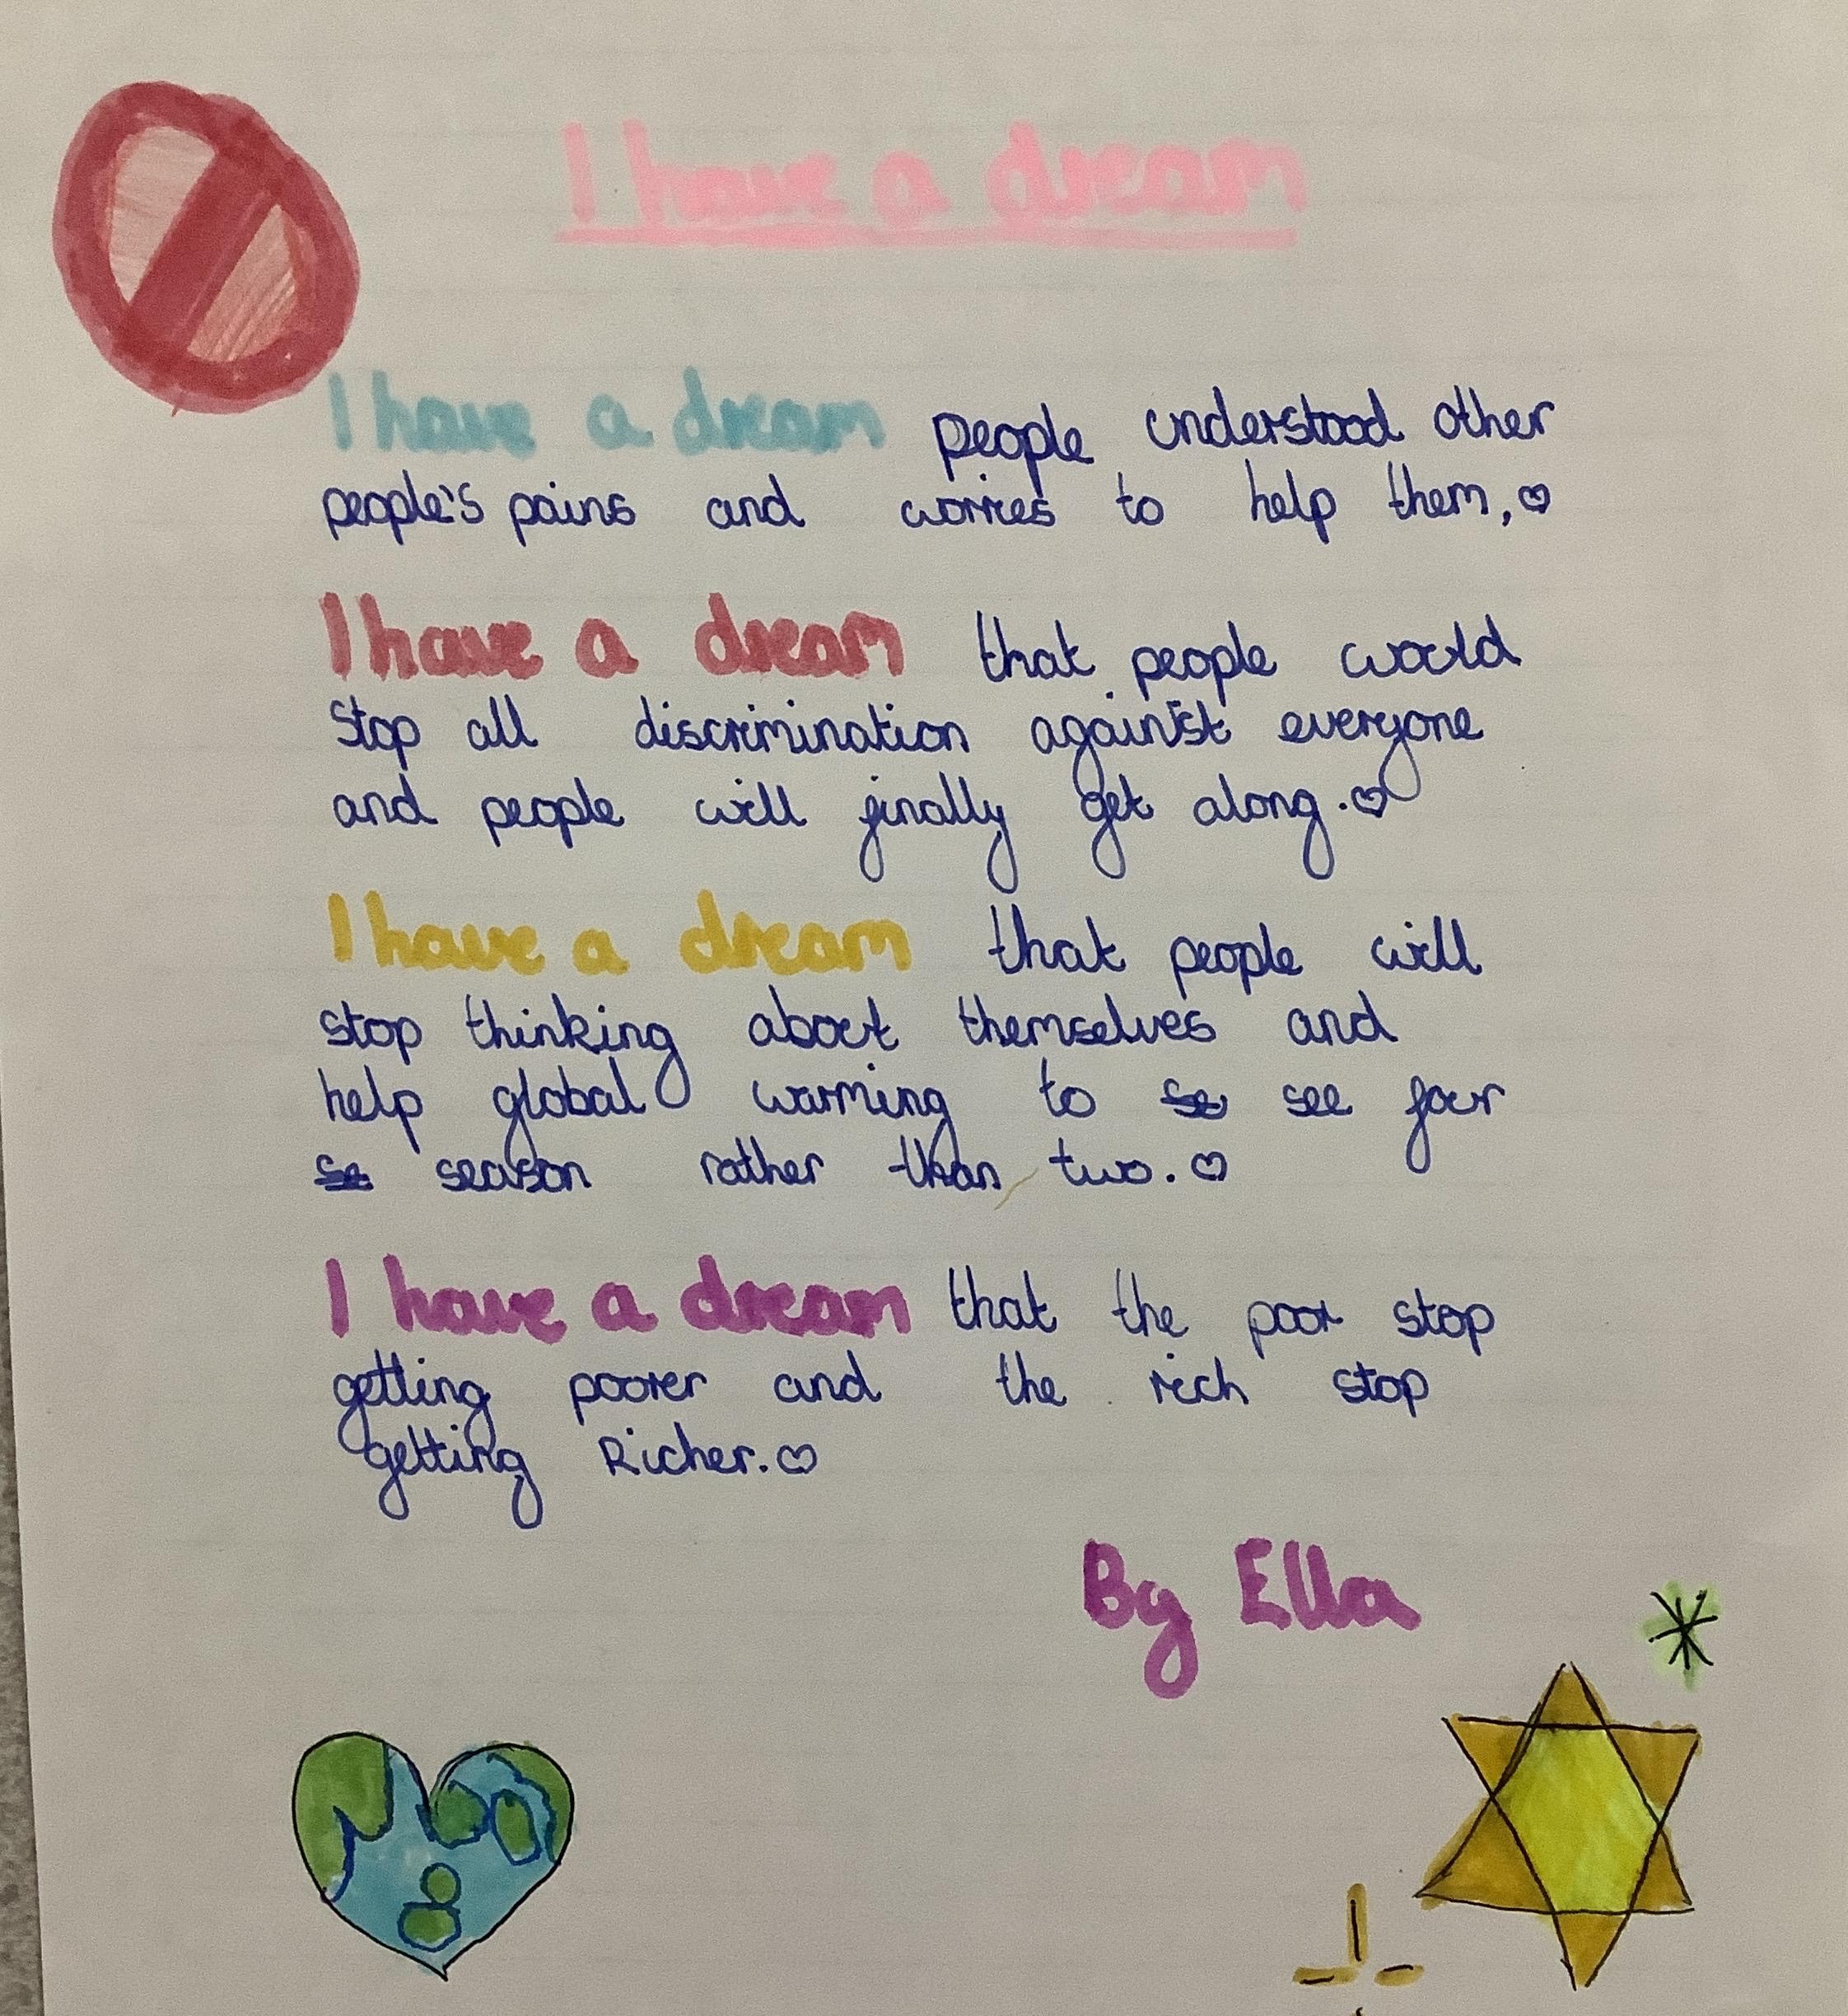 I have a dream
I have a dream people understood other
people's pains and worries to help them,♡
I have a dream that people would
stop all discrimination against everyone
and people will finally get along.♡
I have a dream that people will
stop thinking about themselves and
help global warming to se see four
se season rather than two.♡
I have a dream that the poor stop
getting poorer and the rich stop
getting Richer.♡
By Ella